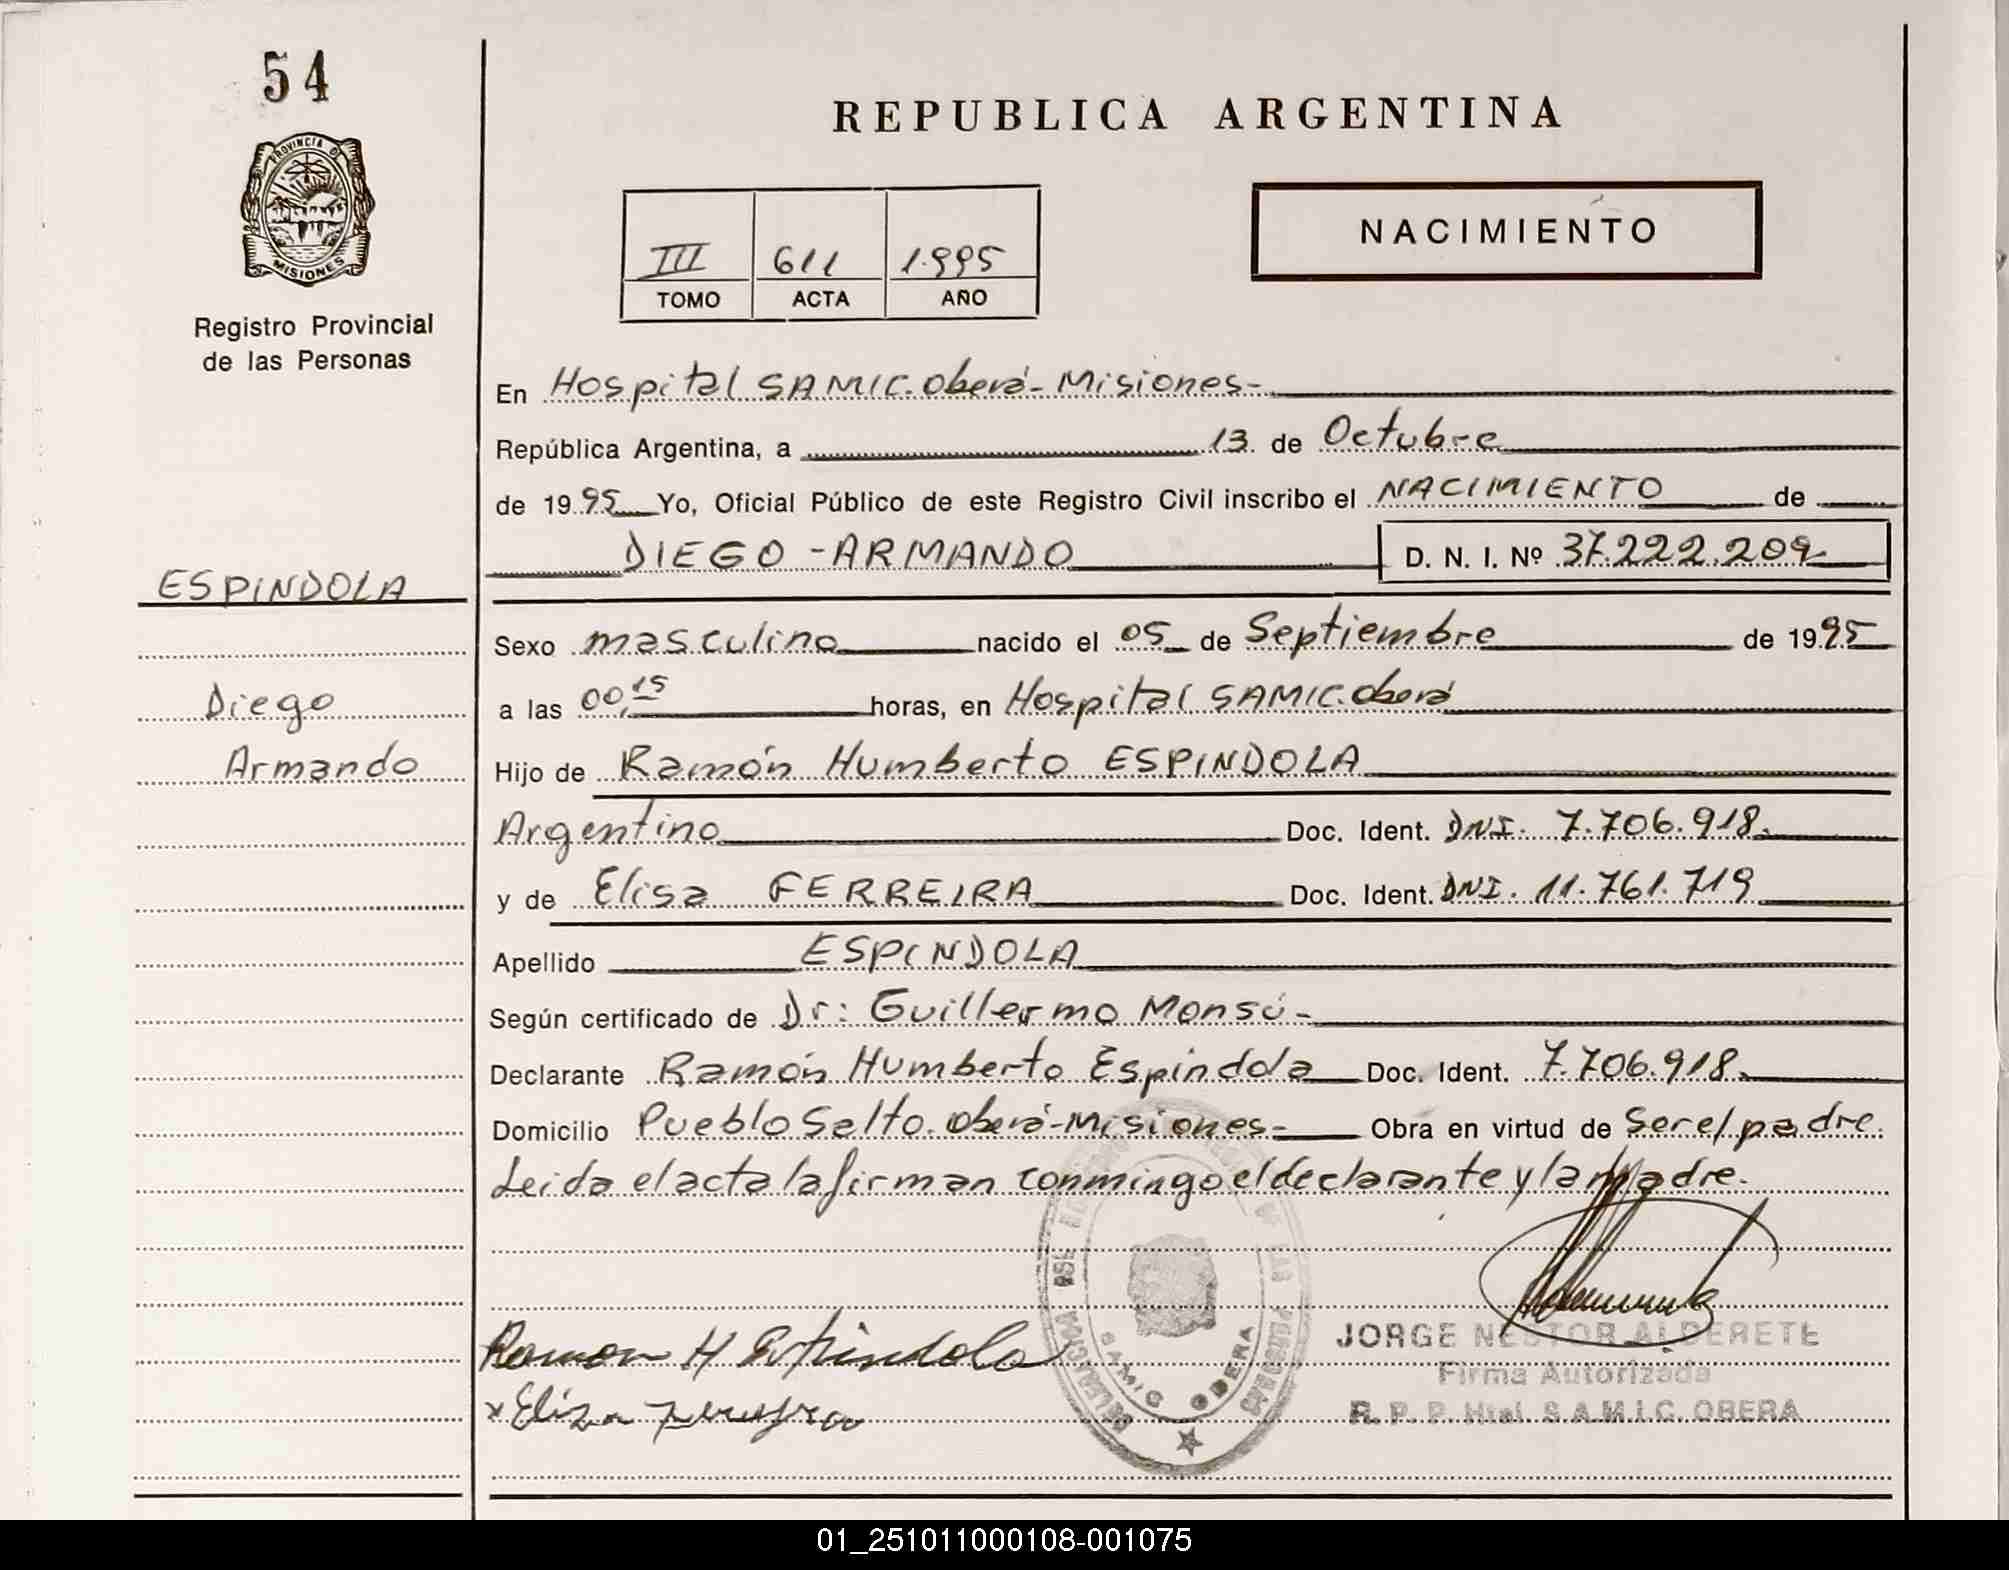 54
REPUBLICA ARGENTINA
PROVINCIA DE
MISIONES
Registro Provincial
de las Personas
III 611 1995
TOMO ACTA AÑO
NACIMIENTO
En Hospital SAMIC. Oberá - Misiones -
República Argentina, a 13 de Octubre
de 1995 Yo, Oficial Público de este Registro Civil inscribo el NACIMIENTO de
DIEGO - ARMANDO D. N. I. Nº 37.222.209
ESPINDOLA
Diego
Armando
Sexo masculino nacido el 05 de Septiembre de 1995
a las 00,15 horas, en Hospital SAMIC. Oberá
Hijo de Ramón Humberto ESPINDOLA
Argentino Doc. Ident. DNI. 7.706.918.
y de Elisa FERREIRA Doc. Ident. DNI. 11.761.719
Apellido ESPINDOLA
Según certificado de Dr: Guillermo Monsú -
Declarante Ramón Humberto Espíndola Doc. Ident. 7.706.918.
Domicilio Pueblo Salto. Oberá - Misiones - Obra en virtud de Ser el padre.
Leida el acta la firman conmingo el declarante y la Madre.
Ramon H Espindola
x Eliza
SAMIC OBERA
JORGE NESTOR ALDERETE
Firma Autorizada
R. P. P. Htal. S.A.M.I.C. OBERA
01_251011000108-001075